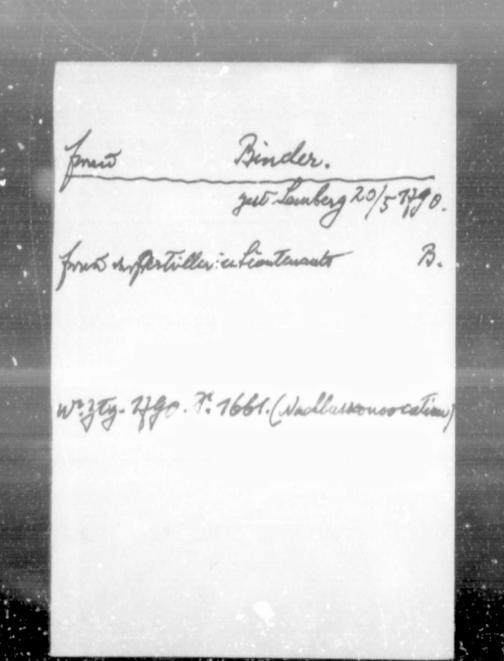 Frau Binder.
gest Lemberg 20/5 1790.
Frau des Artillerie Lieutenants B.
Wr. Ztg. 1790. S. 1661. (Nachlassconvocation)